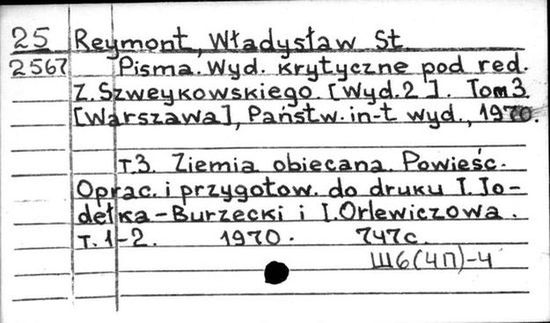 25 Reymont, Władysław St.
2567 Pisma. Wyd. krytyczne pod red.
Z. Szweykowskiego. [Wyd. 2]. Tom 3.
[Warszawa], Państw. in-t wyd., 1970.
т.3. Ziemia obiecana. Powieść.
Oprac. i przygotow. do druku T. Jo-
dełka-Burzecki i I. Orlewiczowa.
т. 1-2. 1970. 747с.
Ш6(4П)-4